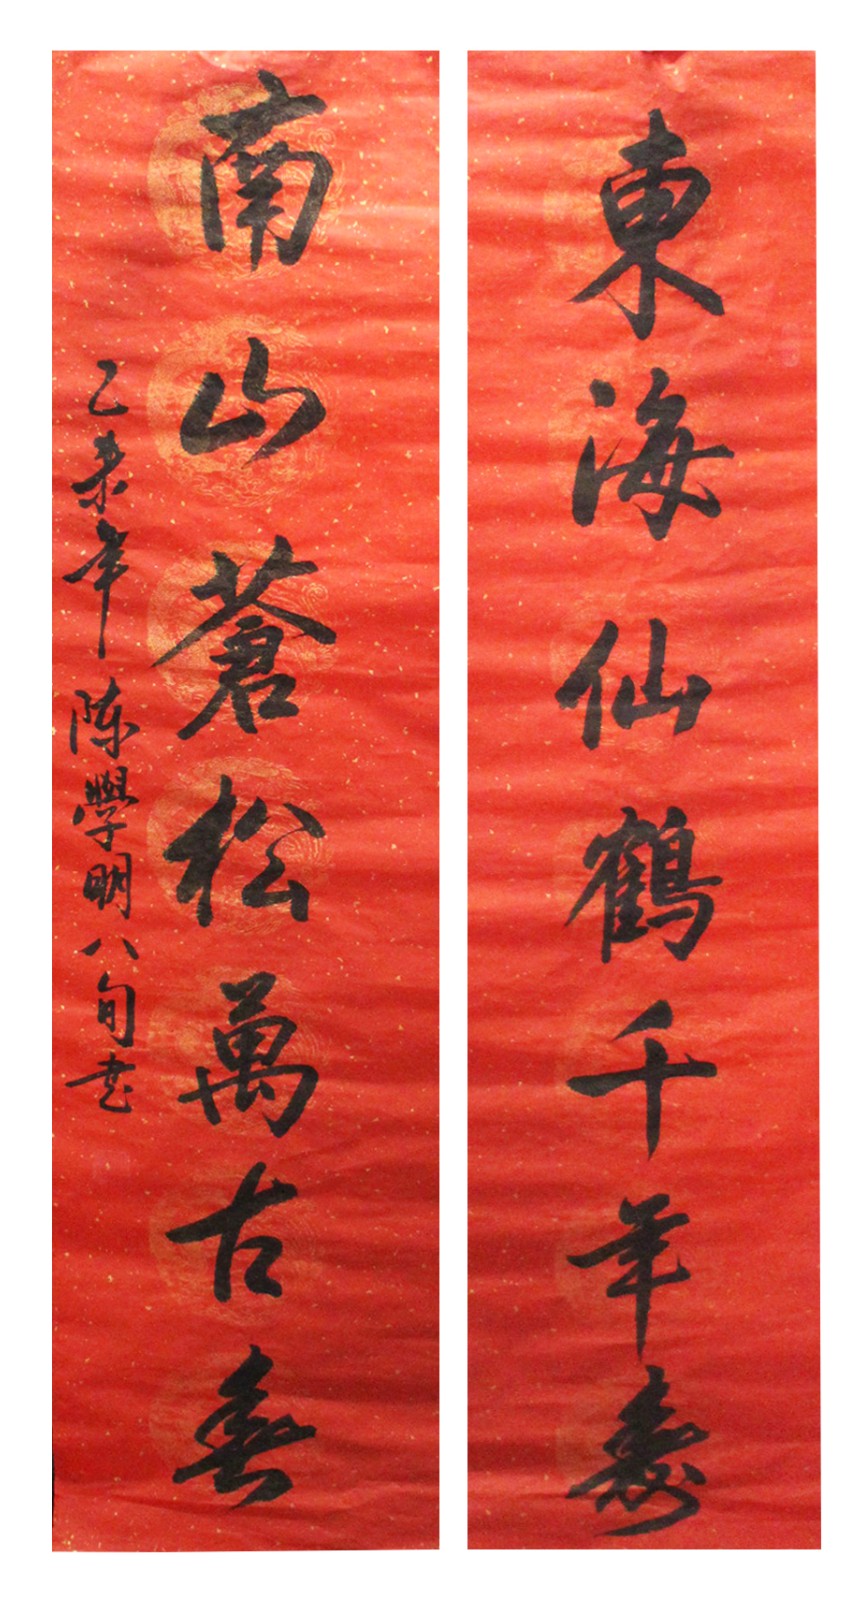 東海仙鶴千年壽
南山蒼松萬古春
乙未年陈學明八旬书